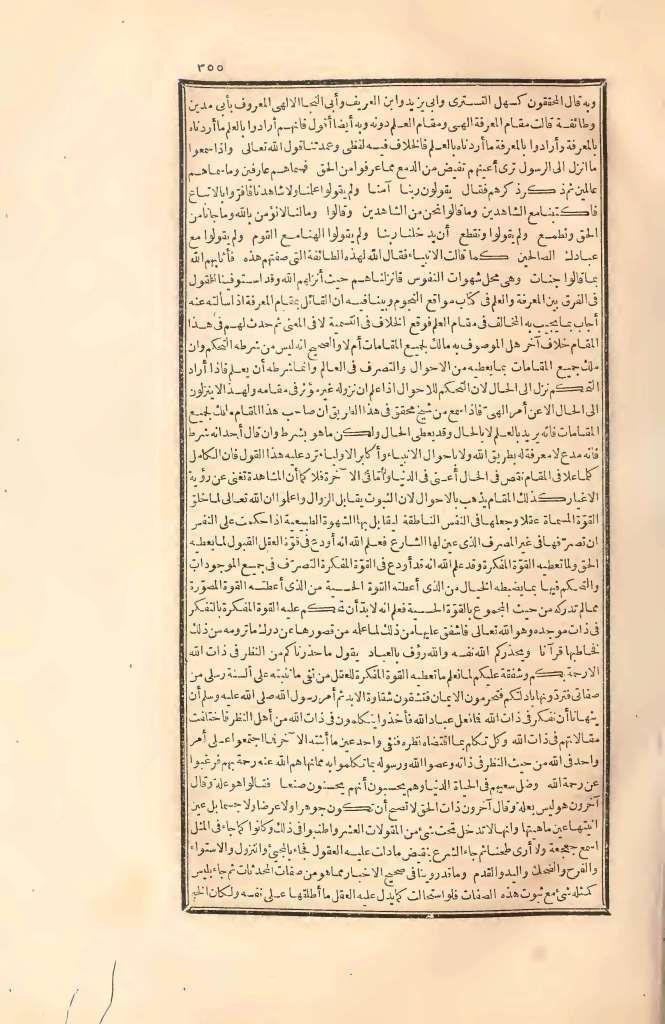 ٣٥٥
وبه قال المحققون كسهل التسترى وابي يزيد وابن العريف وأبي النجا الالهى المعروف بأبي مدين
وطائفة قالت مقام المعرفة الهى ومقام العلم دونه وبه أيضا أقول فانهم أرادوا بالعلم ما أردناه
بالمعرفة وأرادوا بالمعرفة ما أردناه بالعلم فالخلاف فيه لفظى وعمدتنا قول الله تعالى واذا سمعوا
ما أنزل الى الرسول ترى أعينهم تفيض من الدمع مما عرفوا من الحق فسماهم عارفين وما سماهم
عالمين ثم ذكر ذكرهم فقال يقولون ربنا آمنا ولم يقولوا علمنا ولا شاهدنا فأقروا بالاتباع
فاكتبنا مع الشاهدين وما قالوا نحن من الشاهدين وقالوا ومالنا لا نؤمن بالله وما جاءنا من
الحق ونطمع ولم يقولوا ونقطع أن يدخلنا ربنا ولم يقولوا الهنا مع القوم ولم يقولوا مع
عبادك الصالحين كما قالت الانبياء فقال الله لهذه الطائفة التى صفتهم هذه فأثابهم الله
بما قالوا جنات وهى محل شهوات النفوس فانزلناهم حيث أنزلهم الله وقد استوفينا القول
فى الفرق بين المعرفة والعلم فى كتاب مواقع النجوم وبينا فيه ان القائل بمقام المعرفة اذا سألته عنه
أجاب بما يجيب به المخالف فى مقام العلم فوقع الخلاف فى التسمية لا فى المعنى ثم حدث لهم فى هذا
المقام خلاف آخر هل الموصوف به مالك لجميع المقامات أم لا والصحيح انه ليس من شرطه التحكم وان
ملك جميع المقامات بما يعطيه من الاحوال والتصرف فى العالم وانما شرطه أن يعلم فاذا أراد
التحكم نزل الى الحال لان التحكم للاحوال اذا علم ان نزوله غير مؤثر فى مقامه ولهذا لا ينزلون
الى الحال الا عن أمر الهى فاذا سمع من شيخ محقق فى هذا الطريق أن صاحب هذا المقام مالك لجميع
المقامات فانه يريد بالعلم لا بالحال وقد يعطى الحال ولكن ما هو بشرط وان قال أحد انه شرط
فانه مدع لا معرفة له بطريق الله ولا باحوال الانبياء وأكابر الاولياء ترد عليه هذا القول فان الكامل
كلما علا فى المقام نقص فى الحال أعنى فى الدنيا وأما فى الآخرة فلا كما أن المشاهدة تغنى عن رؤية
الاغيار كذلك المقام يذهب بالاحوال لان الثبوت يقابل الزوال واعلموا ان الله تعالى لما خلق
القوة المسماة عقلا وجعلها فى النفس الناطقة ليقابل بها الشهوة الطبيعية اذا حكمت على النفس
ان تصرفها فى غير المصرف الذى عين لها الشارع فعلم الله انه أودع فى قوة العقل القبول لما يعطيه
الحق ولما تعطيه القوة المفكرة وقد علم الله انه قد أودع فى القوة المفكرة التصرف فى جميع الموجودات
والتحكم فيها بما يضبطه الخيال من الذى أعطته القوة الحسية من الذى أعطته القوة المصورة
مما لم تدركه من حيث المجموع بالقوة الحسية فعلم انه لا بد أن تحكم عليه القوة المفكرة بالتفكر
فى ذات موجده وهو الله تعالى فاشفق عليها من ذلك لما علمه من قصورها عن درك ما ترومه من ذلك
فخاطبها قرآنا ويحذركم الله نفسه والله رؤف بالعباد يقول ما حذرناكم من النظر فى ذات الله
الا رحمة بكم وشفقة عليكم لما نعلم ما تعطيه القوة المفكرة للعقل من نفى ما نثبته على ألسنة رسلى من
صفاتى فتردونها بادلتكم فتحرمون الايمان فتشقون شقاوة الابد ثم أمر رسول الله صلى الله عليه وسلم أن
ينهانا أن نفكر فى ذات الله كما فعل عباد الله فأخذوا يتكلمون فى ذات الله من أهل النظر فاختلفت
مقالاتهم فى ذات الله وكل تكلم بما اقتضاه نظره فنفى واحد عين ما أثبته الآخر فما اجتمعوا على أمر
واحد فى الله من حيث النظر فى ذاته وعصوا الله ورسوله بما تكلموا به مما نهاهم الله عنه رحمة بهم فرغبوا
عن رحمة الله وضل سعيهم فى الحياة الدنيا وهم يحسبون أنهم يحسنون صنعا فقالوا هو علة وقال
آخرون هو ليس بعلة وقال آخرون ذات الحق لا تصح أن تكون جوهرا ولا عرضا ولا جسما بل عين
انيتها عين ماهيتها وانها لا تدخل تحت شئ من المقولات العشر واطنبوا فى ذلك وكانوا كما جاء فى المثل
اسمع جعجعة ولا أرى طحنا ثم جاء الشرع بنقيض ما دلت عليه العقول فجاء بالمجئ والنزول والاستواء
والفرح والضحك واليد والقدم وما قد روينا فى صحيح الاخبار مما هو من صفات المحدثات ثم جاء بليس
كمثله شئ مع ثبوت هذه الصفات فلو استحالت كما يدل عليه العقل ما أطلقها على نفسه ولكان الخبر